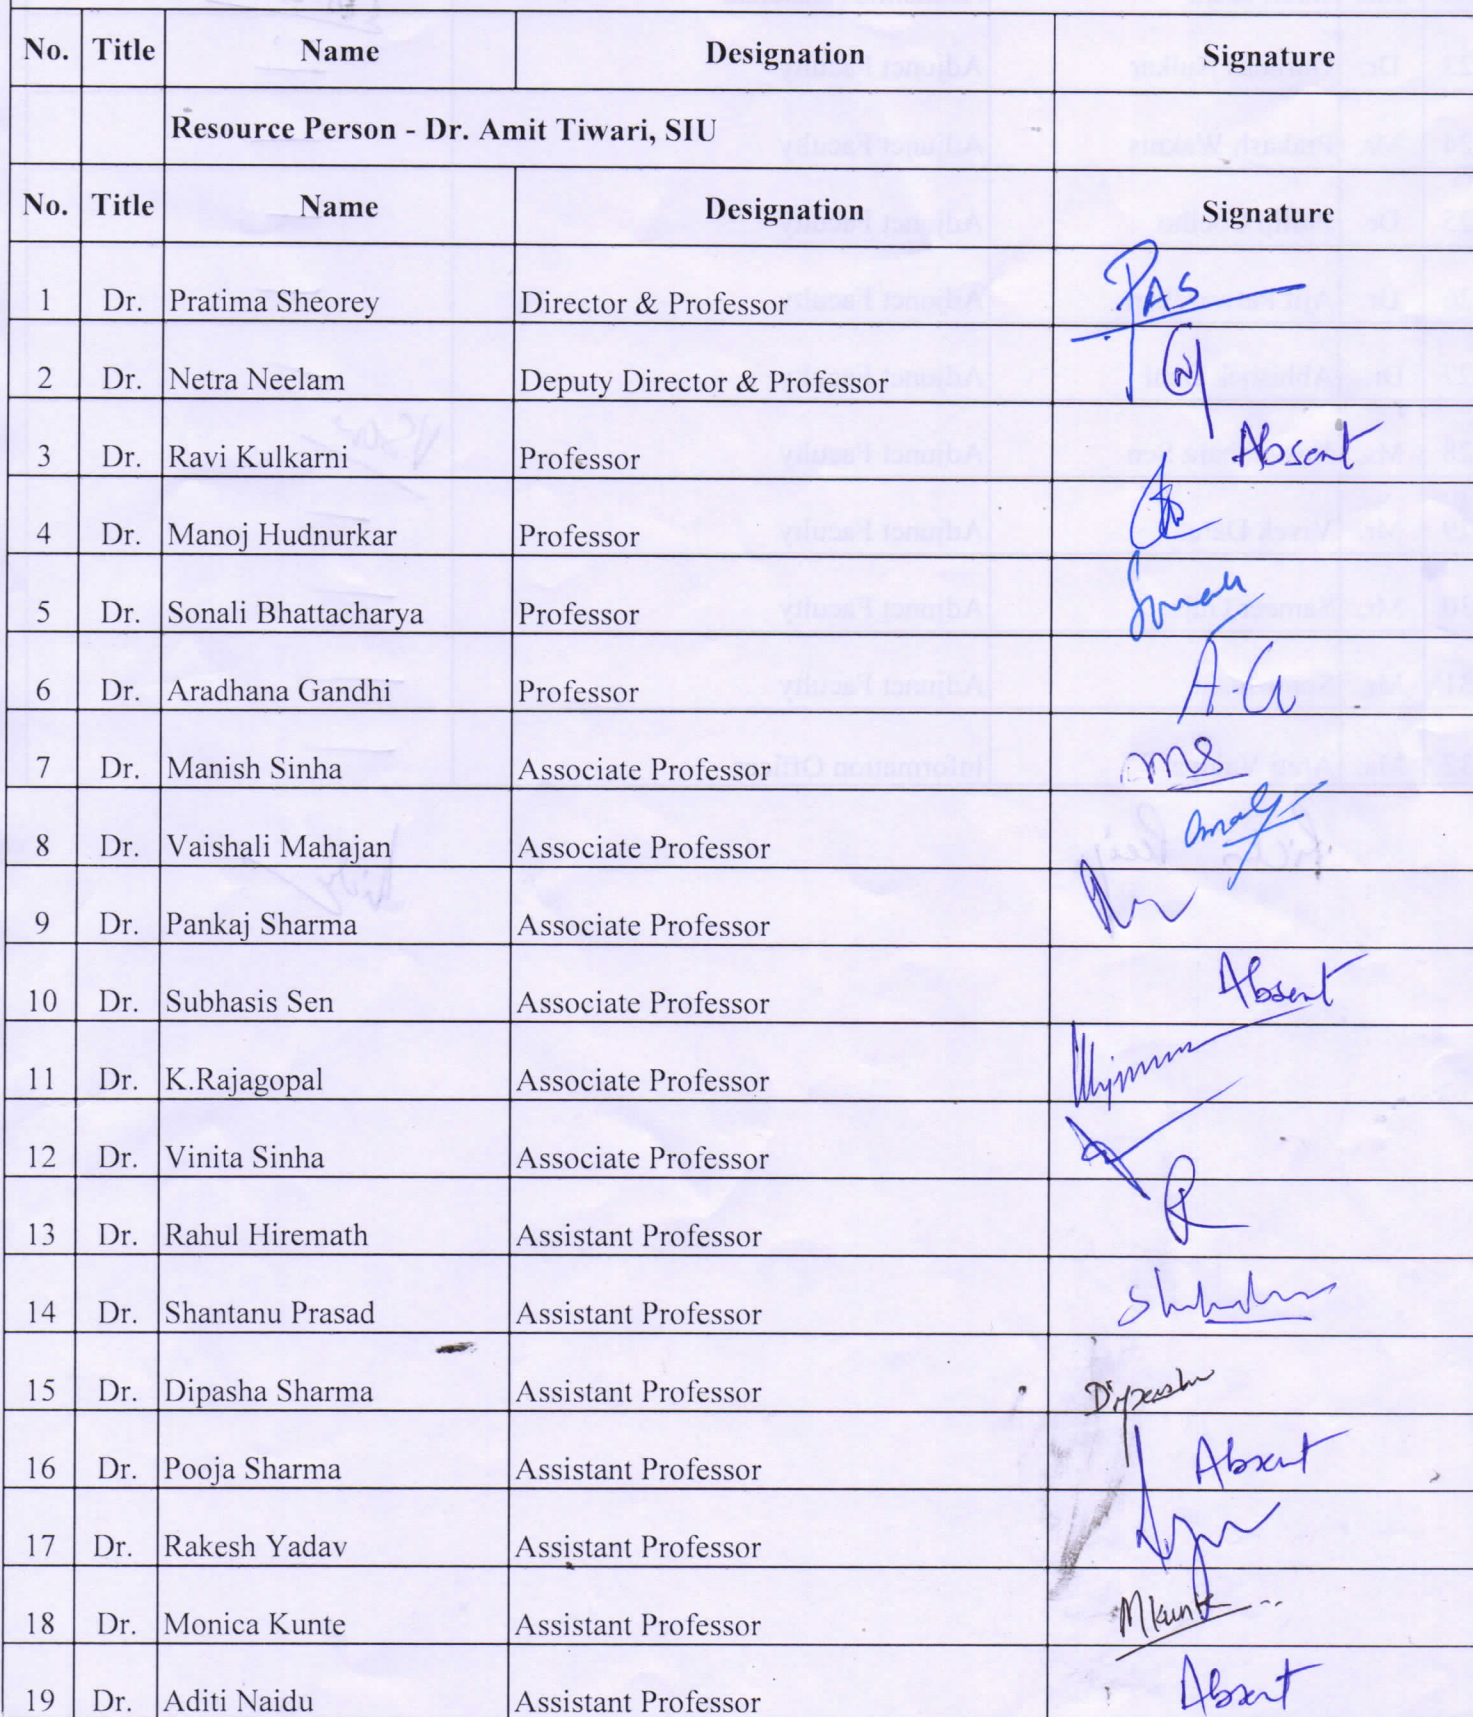 No. Title Name Designation Signature
Resource Person - Dr. Amit Tiwari, SIU
No. Title Name Designation Signature
1 Dr. Pratima Sheorey Director & Professor PAS
2 Dr. Netra Neelam Deputy Director & Professor
3 Dr. Ravi Kulkarni Professor Absent
4 Dr. Manoj Hudnurkar Professor
5 Dr. Sonali Bhattacharya Professor
6 Dr. Aradhana Gandhi Professor
7 Dr. Manish Sinha Associate Professor
8 Dr. Vaishali Mahajan Associate Professor
9 Dr. Pankaj Sharma Associate Professor
10 Dr. Subhasis Sen Associate Professor Absent
11 Dr. K.Rajagopal Associate Professor
12 Dr. Vinita Sinha Associate Professor
13 Dr. Rahul Hiremath Assistant Professor
14 Dr. Shantanu Prasad Assistant Professor
15 Dr. Dipasha Sharma Assistant Professor Dipasha
16 Dr. Pooja Sharma Assistant Professor Absent
17 Dr. Rakesh Yadav Assistant Professor
18 Dr. Monica Kunte Assistant Professor MKunte
19 Dr. Aditi Naidu Assistant Professor Absent